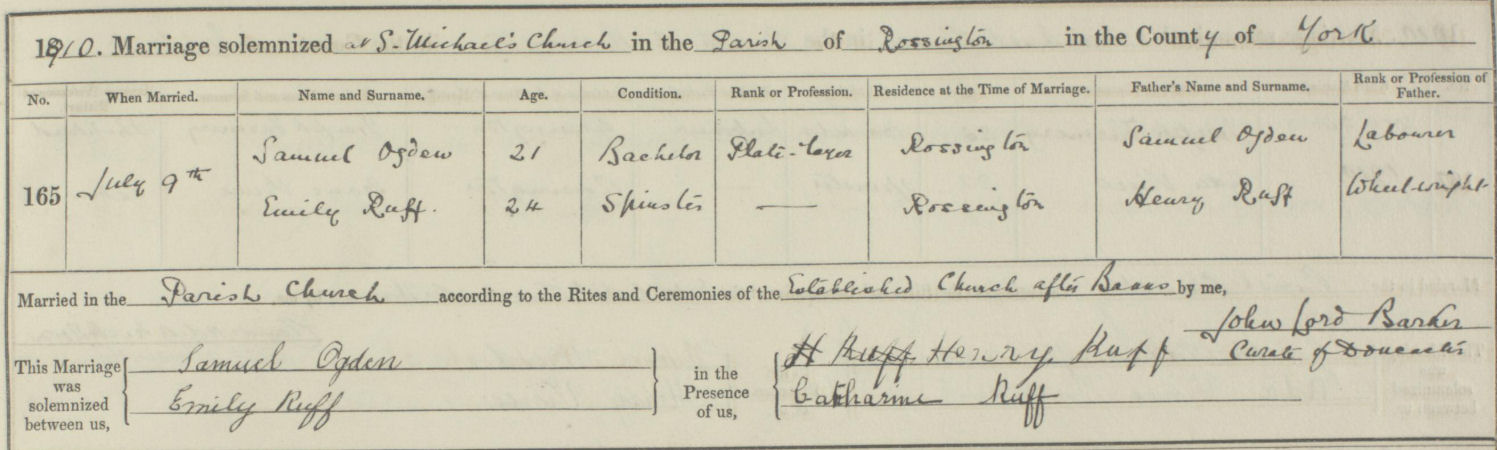 1910. Marriage solemnized at S. Michael's Church in the Parish of Rossington in the County of York
No. When Married. Name and Surname. Age. Condition. Rank or Profession. Residence at the Time of Marriage. Father's Name and Surname. Rank or Profession of Father.
165 July 9th Samuel Ogden 21 Bachelor Plate-layer Rossington Samuel Ogden Labourer
Emily Ruff. 24 Spinster — Rossington Henry Ruff Wheelwright
Married in the Parish Church according to the Rites and Ceremonies of the Established Church after Banns by me,
John Lord Barker
Curate of Doncaster
This Marriage was solemnized between us, Samuel Ogden in the Presence of us, H Ruff Henry Ruff
Emily Ruff Catharine Ruff